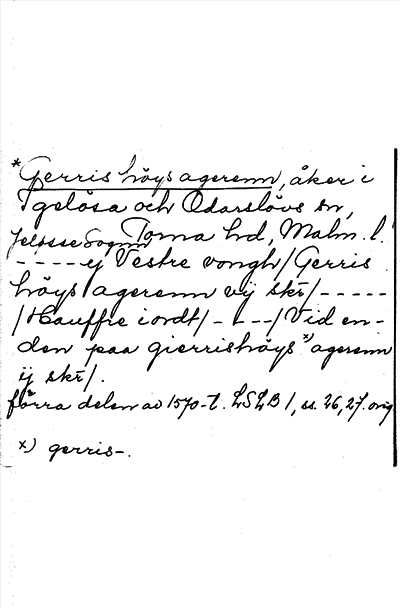 *Gerris höys agerenn, åker i
Igelösa och Odarslövs sn,
Torna hd, Malm. l.
Jelösse Sognn
- - - - - ij Vestre vongh/Gerris
höys agerenn vij skr/- - - - -
/Hauffre iordt/- - - -/Vid en-
den paa gierrishöys x) agerenn
ij skr/.
förra delen av 1570-t. LSLB 1, ss. 26, 27. orig
x) gerris-.